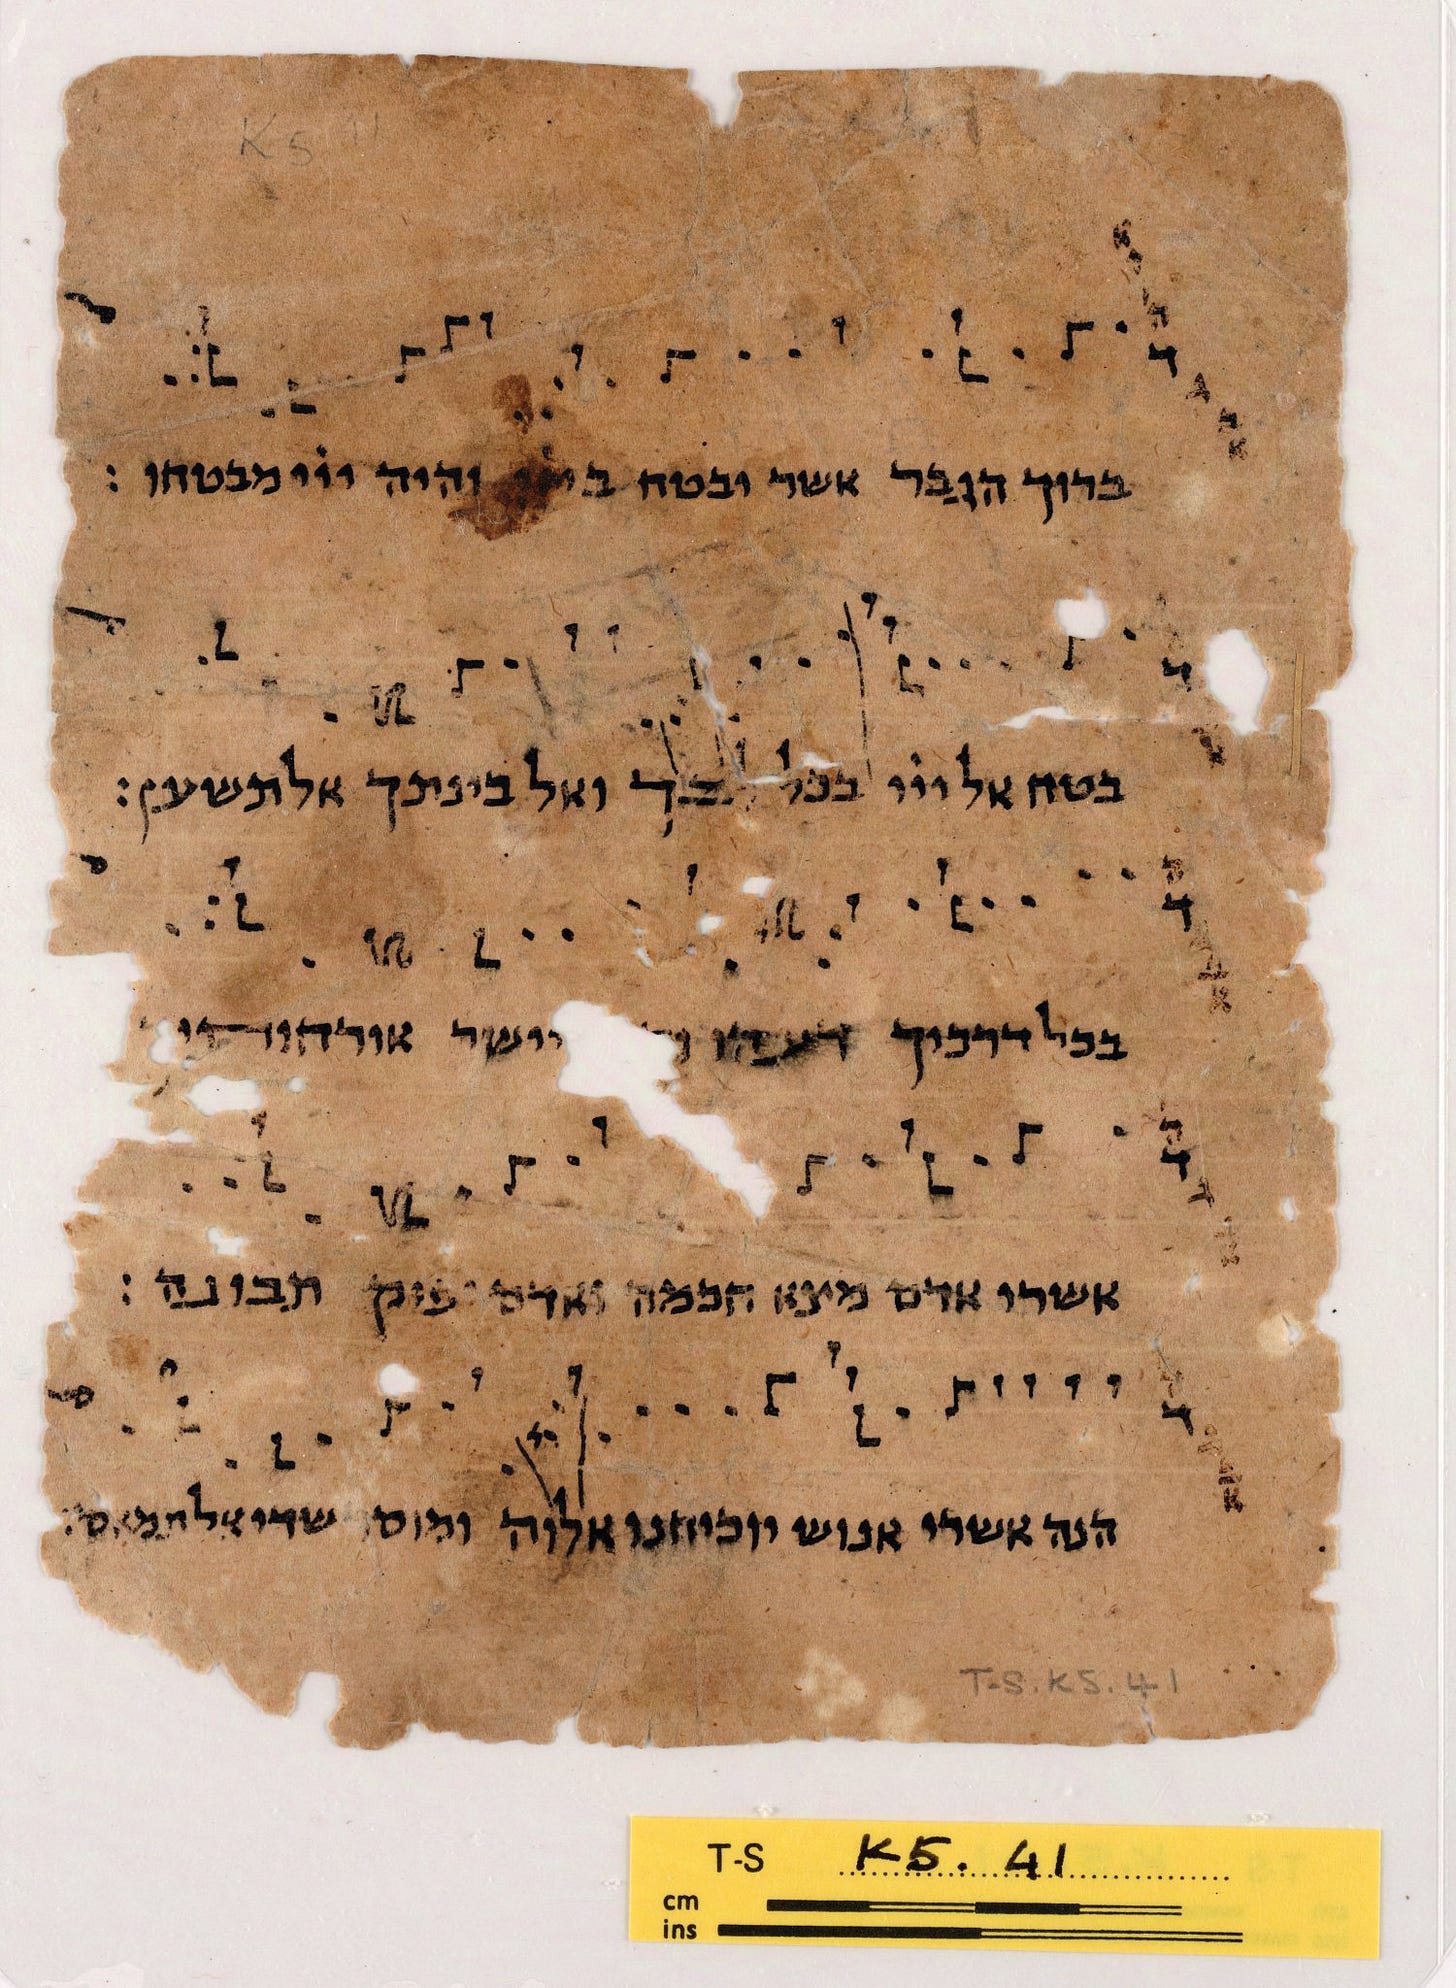 K5
ברוך הגבר אשר יבטח בייי והיה ייי מבטחו :
בטח אל ייי בכל לבך ואל בינתך אל תשען :
בכל דרכיך דעהו יישר אורחותיך
אשרי אדם מצא חכמה ואדם יפיק תבונה :
הנה אשרי אנוש יוכיחנו אלוה ומוסר שדי אל תמאס :
T-S.K5.41
T-S K5.41
cm
ins